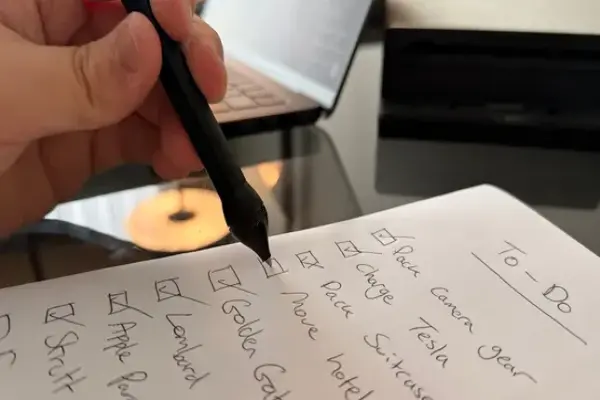 To-Do
Pack camera gear
Charge Tesla
Pack Suitcase
Move hotel
Golden Gat
Lombard
Apple Par
Strutt
Dr